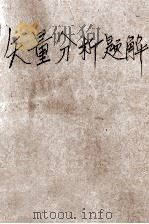 矢量分析题解
www.mtoou.info